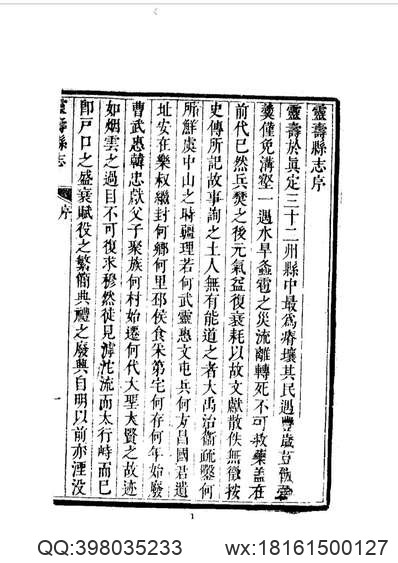 靈壽縣志序
靈壽於眞定三十二州縣中最爲瘠壤其民遇豐歲豆飯
羹僅免溝壑一遇水旱螽雹之災流離轉死不可救藥蓋在
前代已然兵燹之後元氣益復衰耗以故文獻散佚無徵按
史傳所記故事詢之土人無有能道之者大禹治衞疏鑿何
所鮮虞中山之時疆理若何武靈惠文屯兵何方昌國君遺
址安在樂叔繼封何鄉何里邳侯食采第宅何存何年始廢
曹武惠韓忠獻父子聚族何村始遷何代大聖大賢之故迹
如烟雲之過目不可復求穆然徒見滹沱流而太行峙而已
卽戸口之盛衰賦役之繁簡典禮之廢興自明以前亦湮没
靈壽縣志
序
一
1
QQ:398035233 wx:18161500127